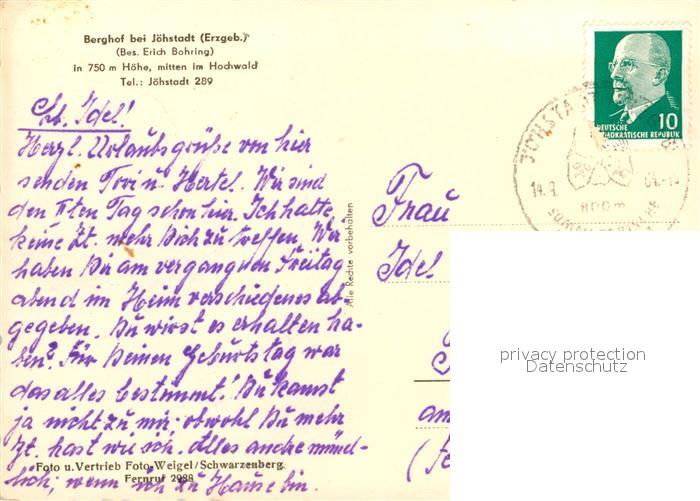 Berghof bei Jöhstadt (Erzgeb.)
(Bes. Erich Bohring)
in 750 m Höhe, mitten im Hochwald
Tel.: Jöhstadt 289
Lb. Idel!
Herzl. Urlaubsgrüße von hier
senden Tori u. Hertel. Wir sind
den ten Tag schon hier. Ich hatte
keine Zt. mehr Dich zu treffen. Wir
haben Dir am vergangenen Freitag
abend im Heim verschiedenes ab-
gegeben. Du wirst es erhalten ha-
ben? Für Deinen Geburtstag war
das alles bestimmt! Du kannst
ja nicht zu mir, obwohl Du mehr
Zt. hast wie ich. Alles andre münd-
lich, wenn ich zu Hause bin.
Foto u. Vertrieb Foto-Weigel/Schwarzenberg
Fernruf 2988
Alle Rechte vorbehalten
DEUTSCHE
DEMOKRATISCHE REPUBLIK
10
JÖHSTADT
14.9.
800 m
Frau
Idel
an
privacy protection
Datenschutz